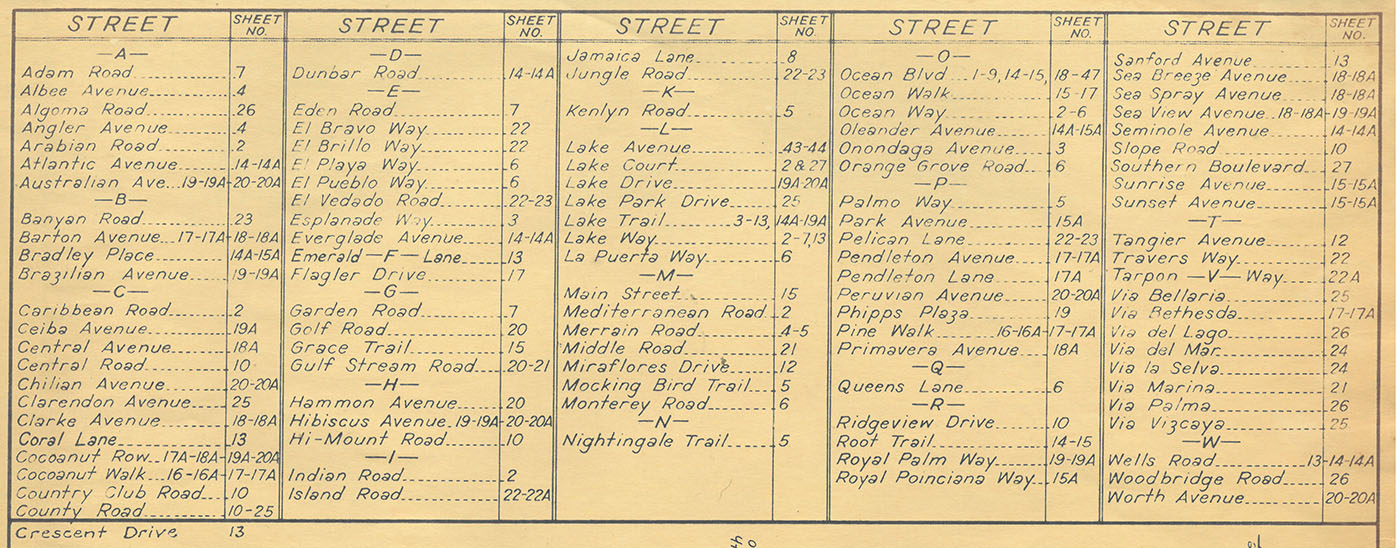 STREET SHEET NO.
—A—
Adam Road 7
Albee Avenue 4
Algoma Road 26
Angler Avenue 4
Arabian Road 2
Atlantic Avenue 14-14A
Australian Ave. 19-19A-20-20A
—B—
Banyan Road 23
Barton Avenue 17-17A-18-18A
Bradley Place 14A-15A
Brazilian Avenue 19-19A
—C—
Caribbean Road 2
Ceiba Avenue 19A
Central Avenue 18A
Central Road 10
Chilian Avenue 20-20A
Clarendon Avenue 25
Clarke Avenue 18-18A
Coral Lane 13
Cocoanut Row 17A-18A-19A-20A
Cocoanut Walk 16-16A-17-17A
Country Club Road 10
County Road 10-25
Crescent Drive 13
STREET SHEET NO.
—D—
Dunbar Road 14-14A
—E—
Eden Road 7
El Bravo Way 22
El Brillo Way 22
El Playa Way 6
El Pueblo Way 6
El Vedado Road 22-23
Esplanade Way 3
Everglade Avenue 14-14A
Emerald —F— Lane 13
Flagler Drive 17
—G—
Garden Road 7
Golf Road 20
Grace Trail 15
Gulf Stream Road 20-21
—H—
Hammon Avenue 20
Hibiscus Avenue 19-19A-20-20A
Hi-Mount Road 10
—I—
Indian Road 2
Island Road 22-22A
STREET SHEET NO.
Jamaica Lane 8
Jungle Road 22-23
—K—
Kenlyn Road 5
—L—
Lake Avenue 43-44
Lake Court 2&27
Lake Drive 19A-20A
Lake Park Drive 25
Lake Trail 3-13, 14A-19A
Lake Way 2-7,13
La Puerta Way 6
—M—
Main Street 15
Mediterranean Road 2
Merrain Road 4-5
Middle Road 21
Miraflores Drive 12
Mocking Bird Trail 5
Monterey Road 6
—N—
Nightingale Trail 5
STREET SHEET NO.
—O—
Ocean Blvd 1-9, 14-15, 18-47
Ocean Walk 15-17
Ocean Way 2-6
Oleander Avenue 14A-15A
Onondaga Avenue 3
Orange Grove Road 6
—P—
Palmo Way 5
Park Avenue 15A
Pelican Lane 22-23
Pendleton Avenue 17-17A
Pendleton Lane 17A
Peruvian Avenue 20-20A
Phipps Plaza 19
Pine Walk 16-16A-17-17A
Primavera Avenue 18A
—Q—
Queens Lane 6
—R—
Ridgeview Drive 10
Root Trail 14-15
Royal Palm Way 19-19A
Royal Poinciana Way 15A
STREET SHEET NO.
Sanford Avenue 13
Sea Breeze Avenue 18-18A
Sea Spray Avenue 18-18A
Sea View Avenue 18-18A-19-19A
Seminole Avenue 14-14A
Slope Road 10
Southern Boulevard 27
Sunrise Avenue 15-15A
Sunset Avenue 15-15A
—T—
Tangier Avenue 12
Travers Way 22
Tarpon —V— Way 22A
Via Bellaria 25
Via Bethesda 17-17A
Via del Lago 26
Via del Mar 24
Via la Selva 24
Via Marina 21
Via Palma 26
Via Vizcaya 25
—W—
Wells Road 13-14-14A
Woodbridge Road 26
Worth Avenue 20-20A